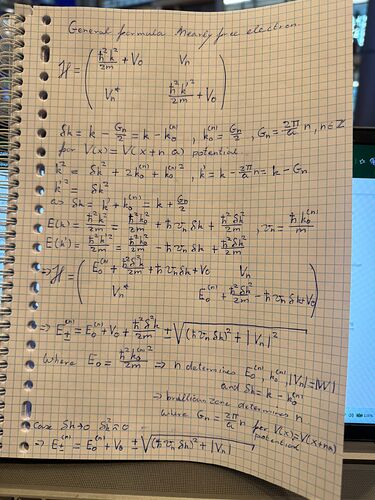 General formula Nearly free electron.
H = ( ħ²k²/2m + V₀   Vₙ
Vₙ*   ħ²k'²/2m + V₀ )
δk = k - Gₙ/2 = k - k₀⁽ⁿ⁾ , k₀⁽ⁿ⁾ = Gₙ/2 , Gₙ = 2π/a n , n∈ℤ
for V(x) = V(x + n a) potential
k² = δk² + 2k₀⁽ⁿ⁾ + k₀⁽ⁿ⁾² , k' = k - 2π/a n = k - Gₙ
k'² = δk²
as δk = k' + k₀⁽ⁿ⁾ = k + Gₙ/2
E(k) = ħ²k²/2m = ħ²k₀⁽ⁿ⁾²/2m + ħvₙδk + ħ²δk²/2m , vₙ = ħk₀⁽ⁿ⁾/m
E(k') = ħ²k'²/2m = ħ²k₀⁽ⁿ⁾²/2m - ħvₙδk + ħ²δk²/2m
⇒ H = ( E₀⁽ⁿ⁾ + ħ²δk²/2m + ħvₙδk + V₀   Vₙ
Vₙ*   E₀⁽ⁿ⁾ + ħ²δk²/2m - ħvₙδk + V₀ )
⇒ E±⁽ⁿ⁾ = E₀⁽ⁿ⁾ + V₀ + ħ²δk²/2m ± √((ħvₙδk)² + |Vₙ|²)
where E₀ = ħ²k₀⁽ⁿ⁾²/2m ⇒ n determines E₀⁽ⁿ⁾, k₀⁽ⁿ⁾, |Vₙ| = |W|
and δk = k - k₀⁽ⁿ⁾
⇒ brillouin zone determines n
where Gₙ = 2π/a n for V(x) = V(x+na) potential
Case δk→0 δk²≈0
⇒ E±⁽ⁿ⁾ = E₀⁽ⁿ⁾ + V₀ ± √((ħvₙδk)² + |Vₙ|)